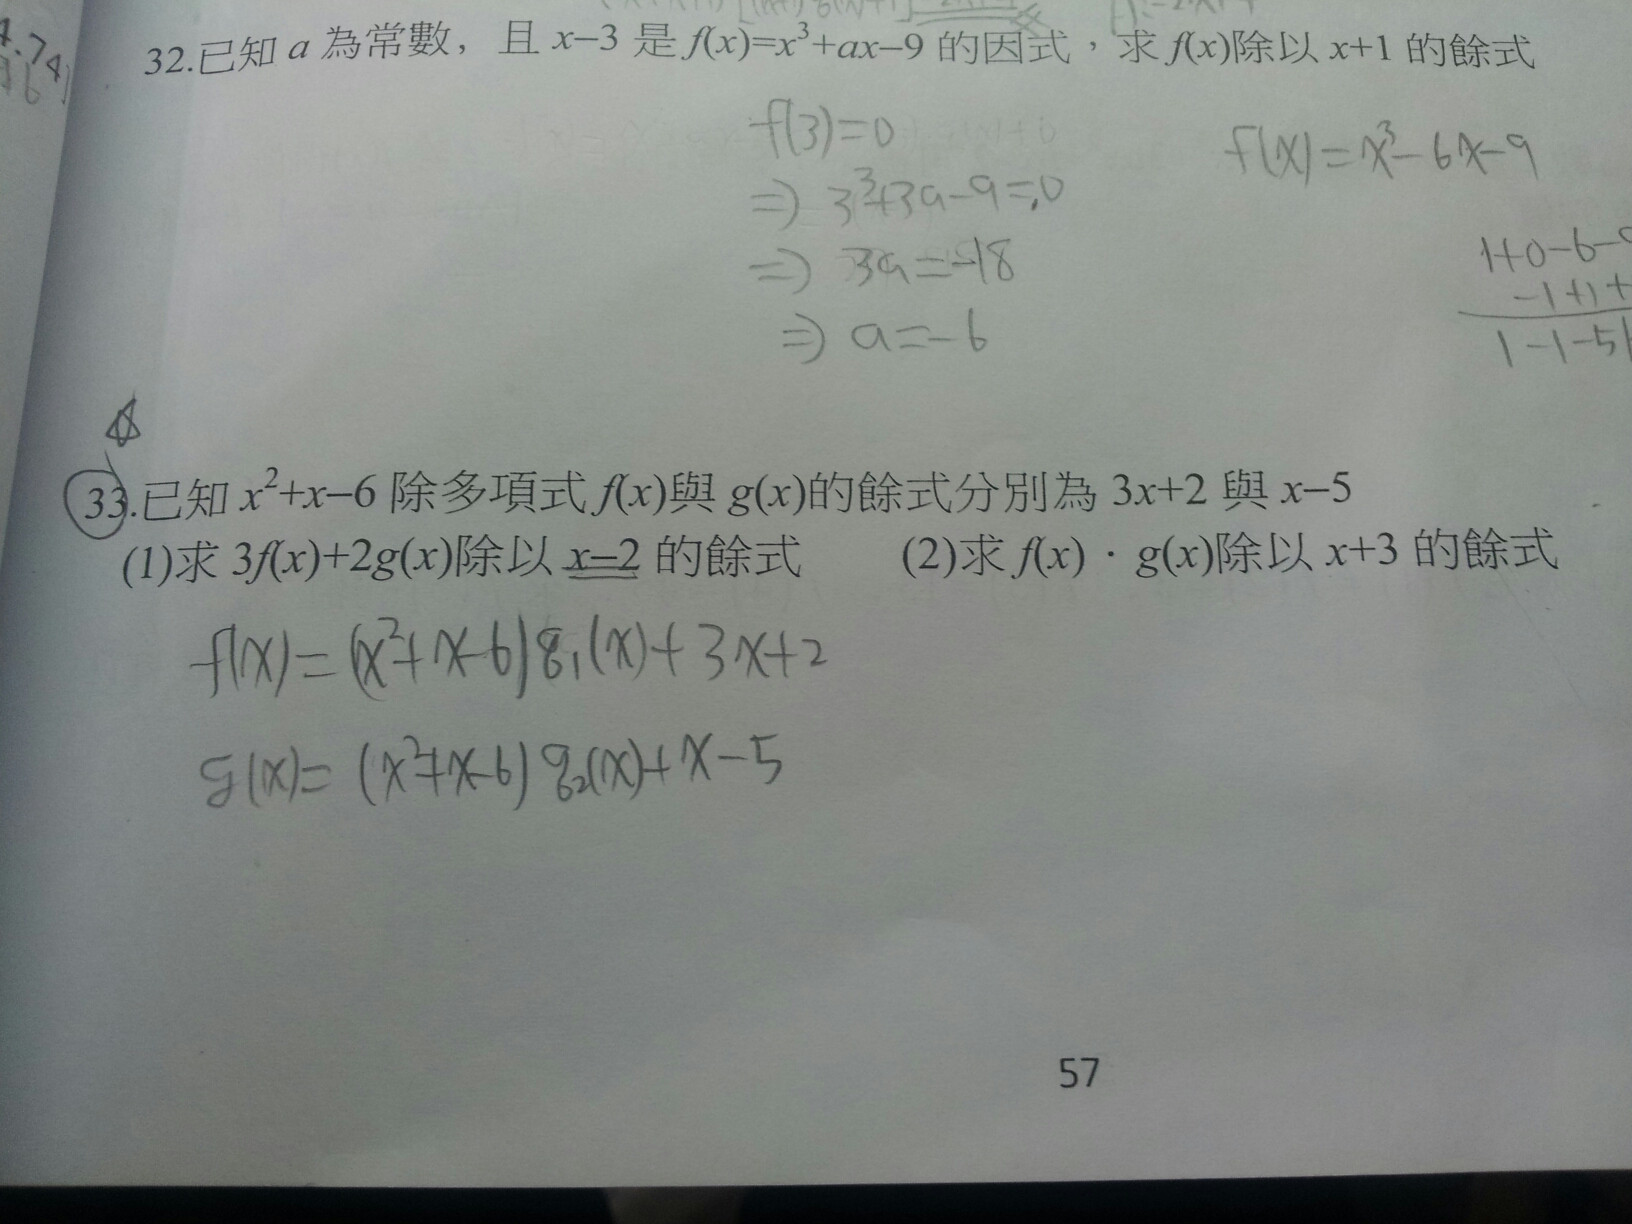 32.已知 a 為常數，且 x−3 是 f(x)=x³+ax−9 的因式，求 f(x)除以 x+1 的餘式
f(3)=0
⇒ 3³+3a−9=0
⇒ 3a=−18
⇒ a=−6
f(x)=x³−6x−9
1+0−6−9
−1+1+
1−1−5
33.已知 x²+x−6 除多項式 f(x)與 g(x)的餘式分別為 3x+2 與 x−5
(1)求 3f(x)+2g(x)除以 x−2 的餘式 (2)求 f(x)．g(x)除以 x+3 的餘式
f(x)=(x²+x−6)q₁(x)+3x+2
g(x)=(x²+x−6)q₂(x)+x−5
57